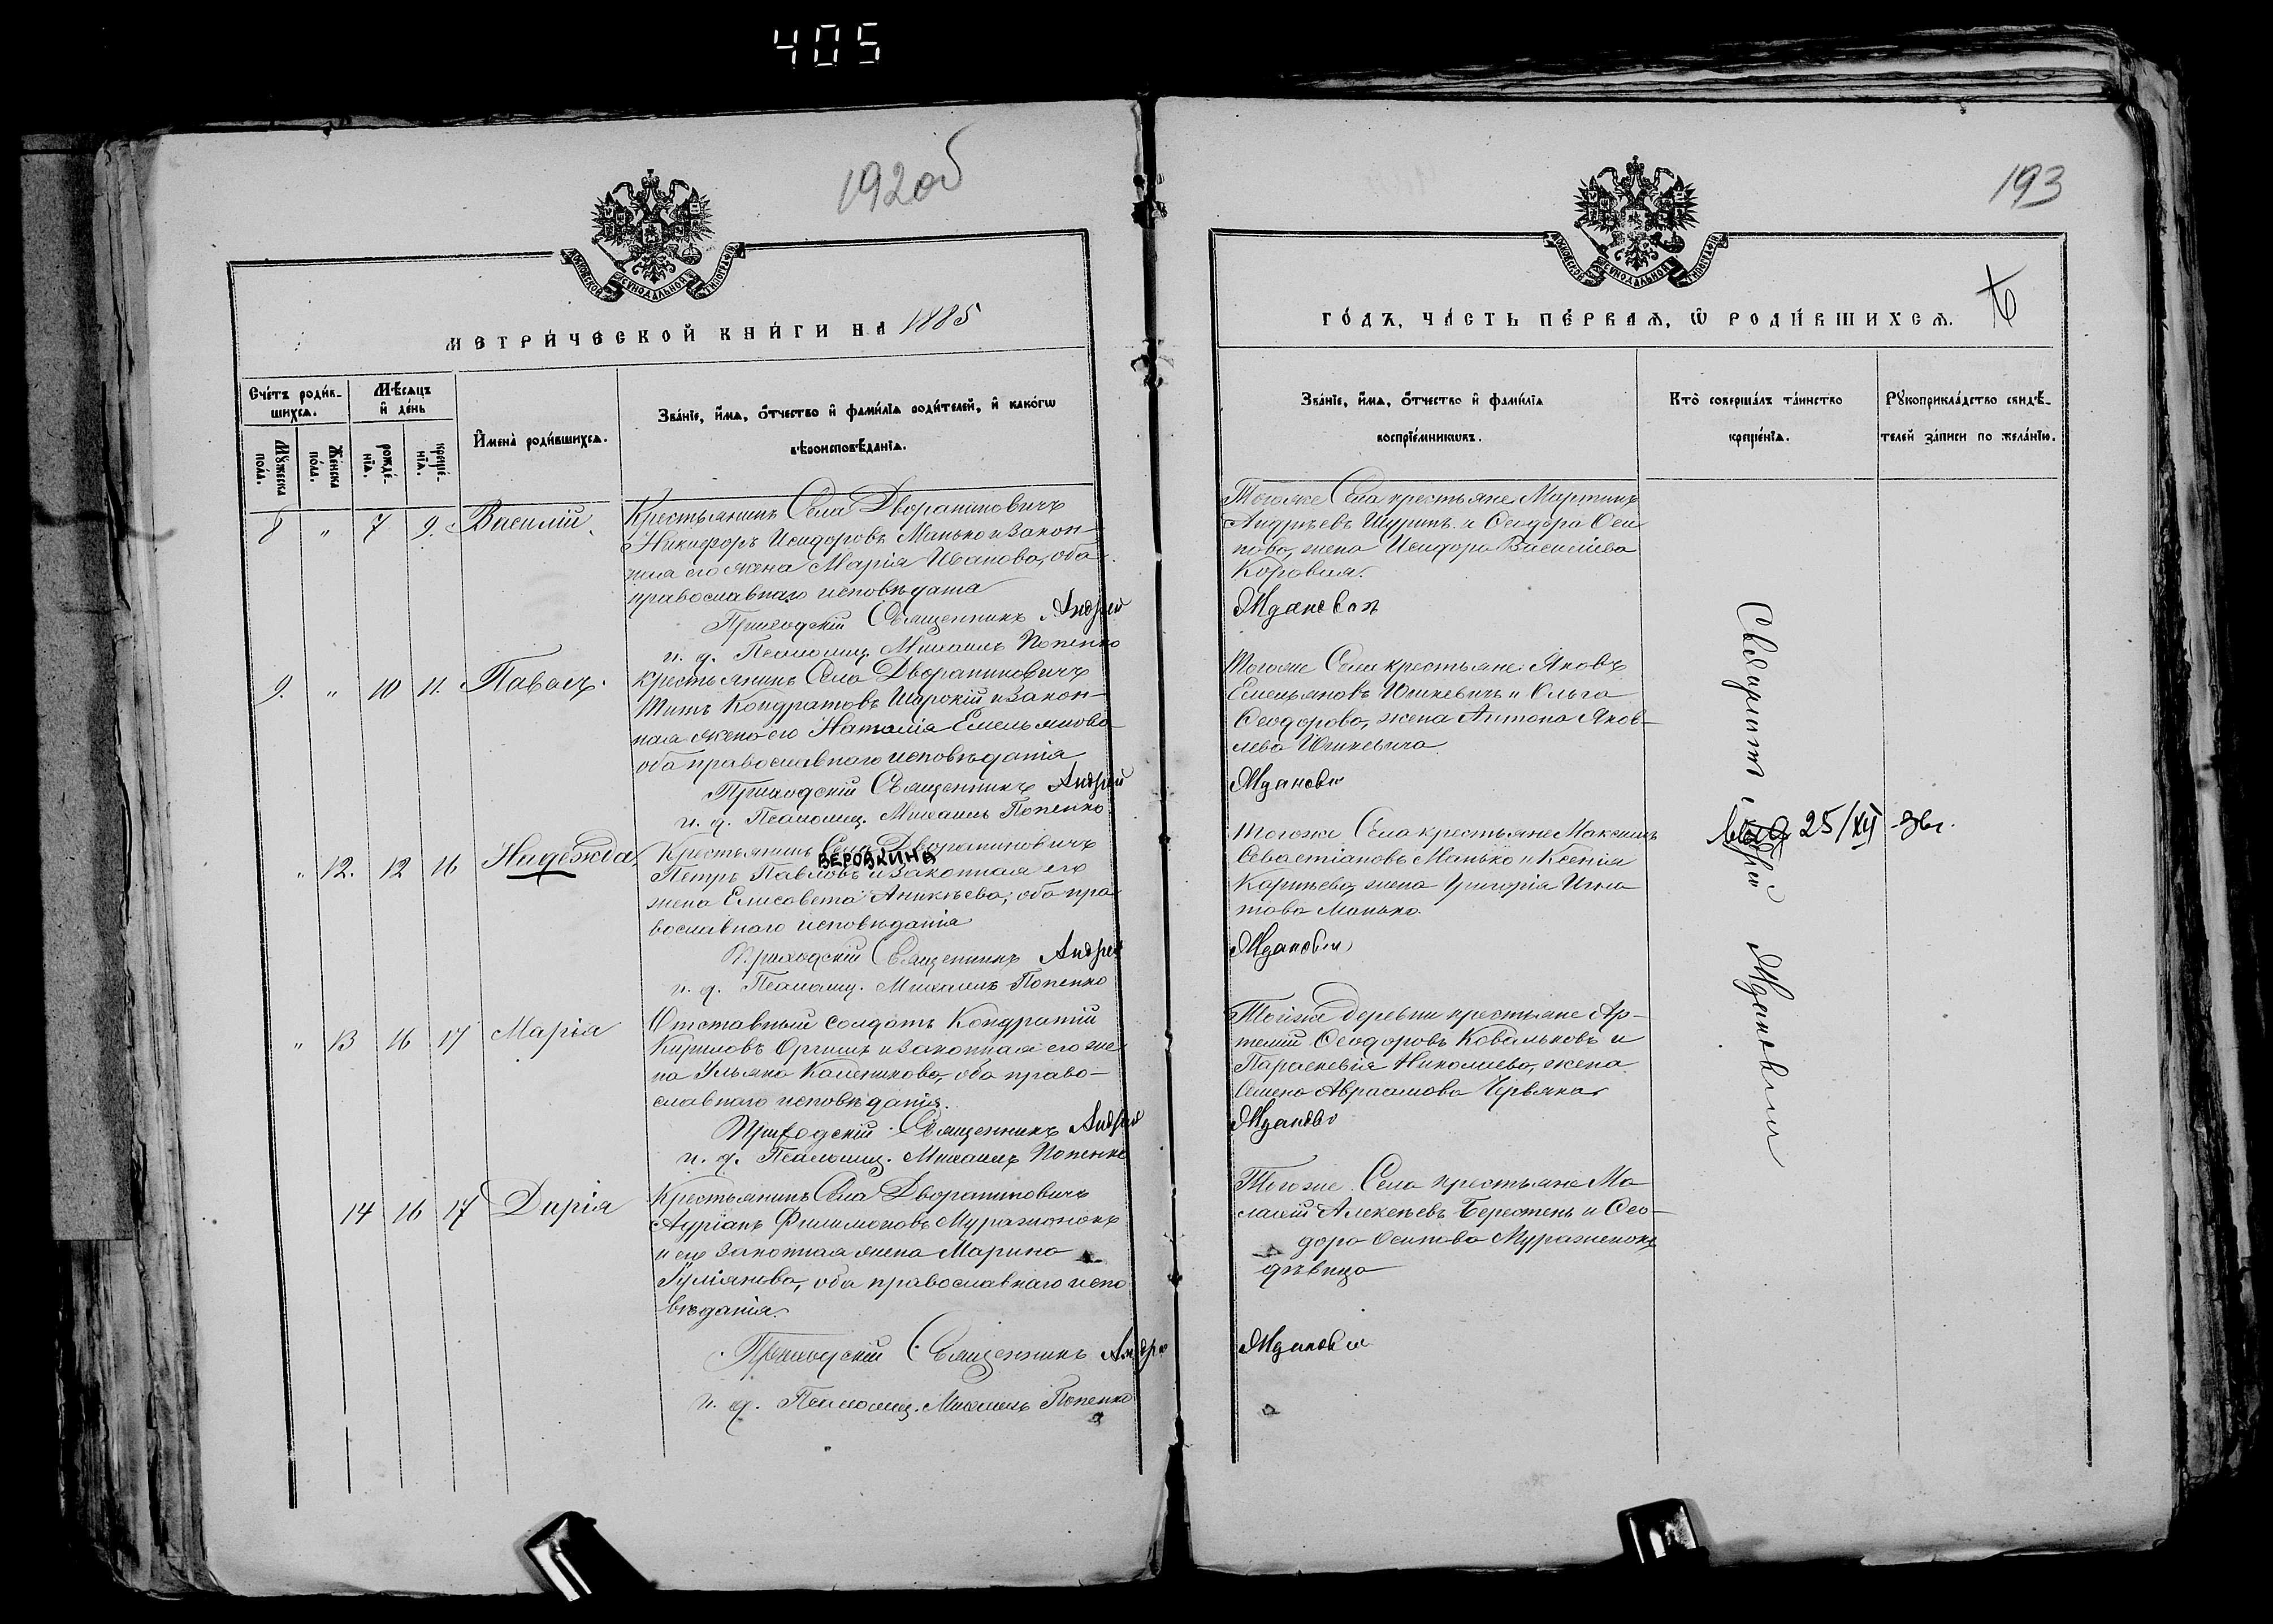 405
192 об
193
МОСКОВСКОЙ СѴНОДАЛЬНОЙ ТИПОГРАФІИ
МЕТРИЧЕСКОЙ КНИГИ НА 1885
Счетъ родив-
шихся.
Мѣсяцъ
и день
Мужеска
пола.
Женска
пола.
рожде-
нія.
креще-
нія.
Имена родившихся.
Званіе, имя, отчество и фамилія родителей, и какого
вѣроисповѣданія.
8 " 7 9. Василій
Крестьянинъ Села Двораниновичъ
Никифоръ Исидоровъ Манько и закон-
ная его жена Марія Иванова, оба
православнаго исповѣданія
Приходскій Священникъ Андрей
и. д. Псаломщ. Михаилъ Попенко
9. " 10 11. Павелъ.
Крестьянинъ Села Двораниновичъ
Титъ Кондратовъ Широкій и закон-
ная жена его Наталія Емельянова
оба православнаго исповѣданія
Приходскій Священникъ Андрей
и. д. Псаломщ. Михаилъ Попенко
" 12. 12 16 Надежда
Крестьянинъ Села Двораниновичъ
ВЕРОВКИНА
Петръ Павловъ и законная его
жена Елисавета Аникѣева, оба пра-
вославнаго исповѣданія
Приходскій Священникъ Андрей
и. д. Псаломщ. Михаилъ Попенко
" 13 16 17 Марія
Отставный солдатъ Кондратій
Кириловъ и законная его же
на Ульяна Каленикова, оба право-
славнаго исповѣданія.
Приходскій Священникъ Андрей
и. д. Псаломщ. Михаилъ Попенко
14 16 17 Дарія
Крестьянинъ Села Двораниновичъ
Адріанъ Филимоновъ Муражонокъ
и его законная жена Марина
Іуліанова, оба православнаго испо
вѣданія.
Приходскій Священникъ Андрей
и. д. Псаломщ. Михаилъ Попенко
МОСКОВСКОЙ СѴНОДАЛЬНОЙ ТИПОГРАФІИ
ГОДЪ, ЧАСТЬ ПЕРВАЯ, Ѡ РОДИВШИХСЯ.
Званіе, имя, отчество и фамилія
воспріемниковъ.
Кто совершалъ таинство
крещенія.
Рукоприкладство свидѣ-
телей записи по желанію.
Тогоже Села крестьяне Мартинъ
Андреевъ Шуринъ и Ѳеодора Оси
пова, жена Исидора Василіева
Коровая.
Ждановичъ
Тогоже Села крестьяне: Яковъ
Емельяновъ Юшкевичъ и Ольга
Ѳеодорова, жена Антона Яков-
лева Юшкевича
Ждановичъ
Тогоже Села крестьяне Максимъ
Севастіановъ Манько и Ксенія
Карпѣева, жена Григорія Игна
това Манько.
Ждановичъ
Тойже деревни крестьяне Ар-
темій Ѳеодоровъ Ковальковъ и
Параскевія Николаева, жена
Семена Авраамова Червяка
Ждановичъ
Тогоже Села крестьяне Ма
лахій Алексѣевъ Берестень и Ѳео-
дора Осипова Муражонокъ
дѣвица
Ждановичъ
Священникъ Андрей Ждановичъ
25/XII -36г.